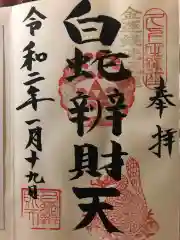 奉拝
白蛇辨財天
令和二年一月十九日